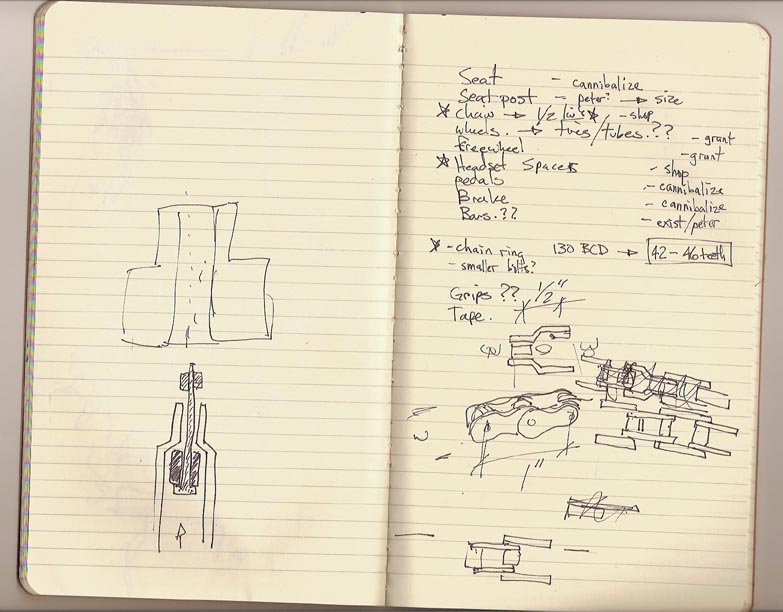 Seat - cannibalize
Seat post - peter? → size
* Chain → 1/2 - shop
wheels. → tires/tubes.?? - grant
freewheel - grant
* Headset Spaces - shop
pedals - cannibalize
Brake - cannibalize
Bars.?? - exist/peter
* - chain ring 130 BCD → 42-46 teeth
- smaller bolts?
Grips ?? 1/2"
Tape.
W
1"